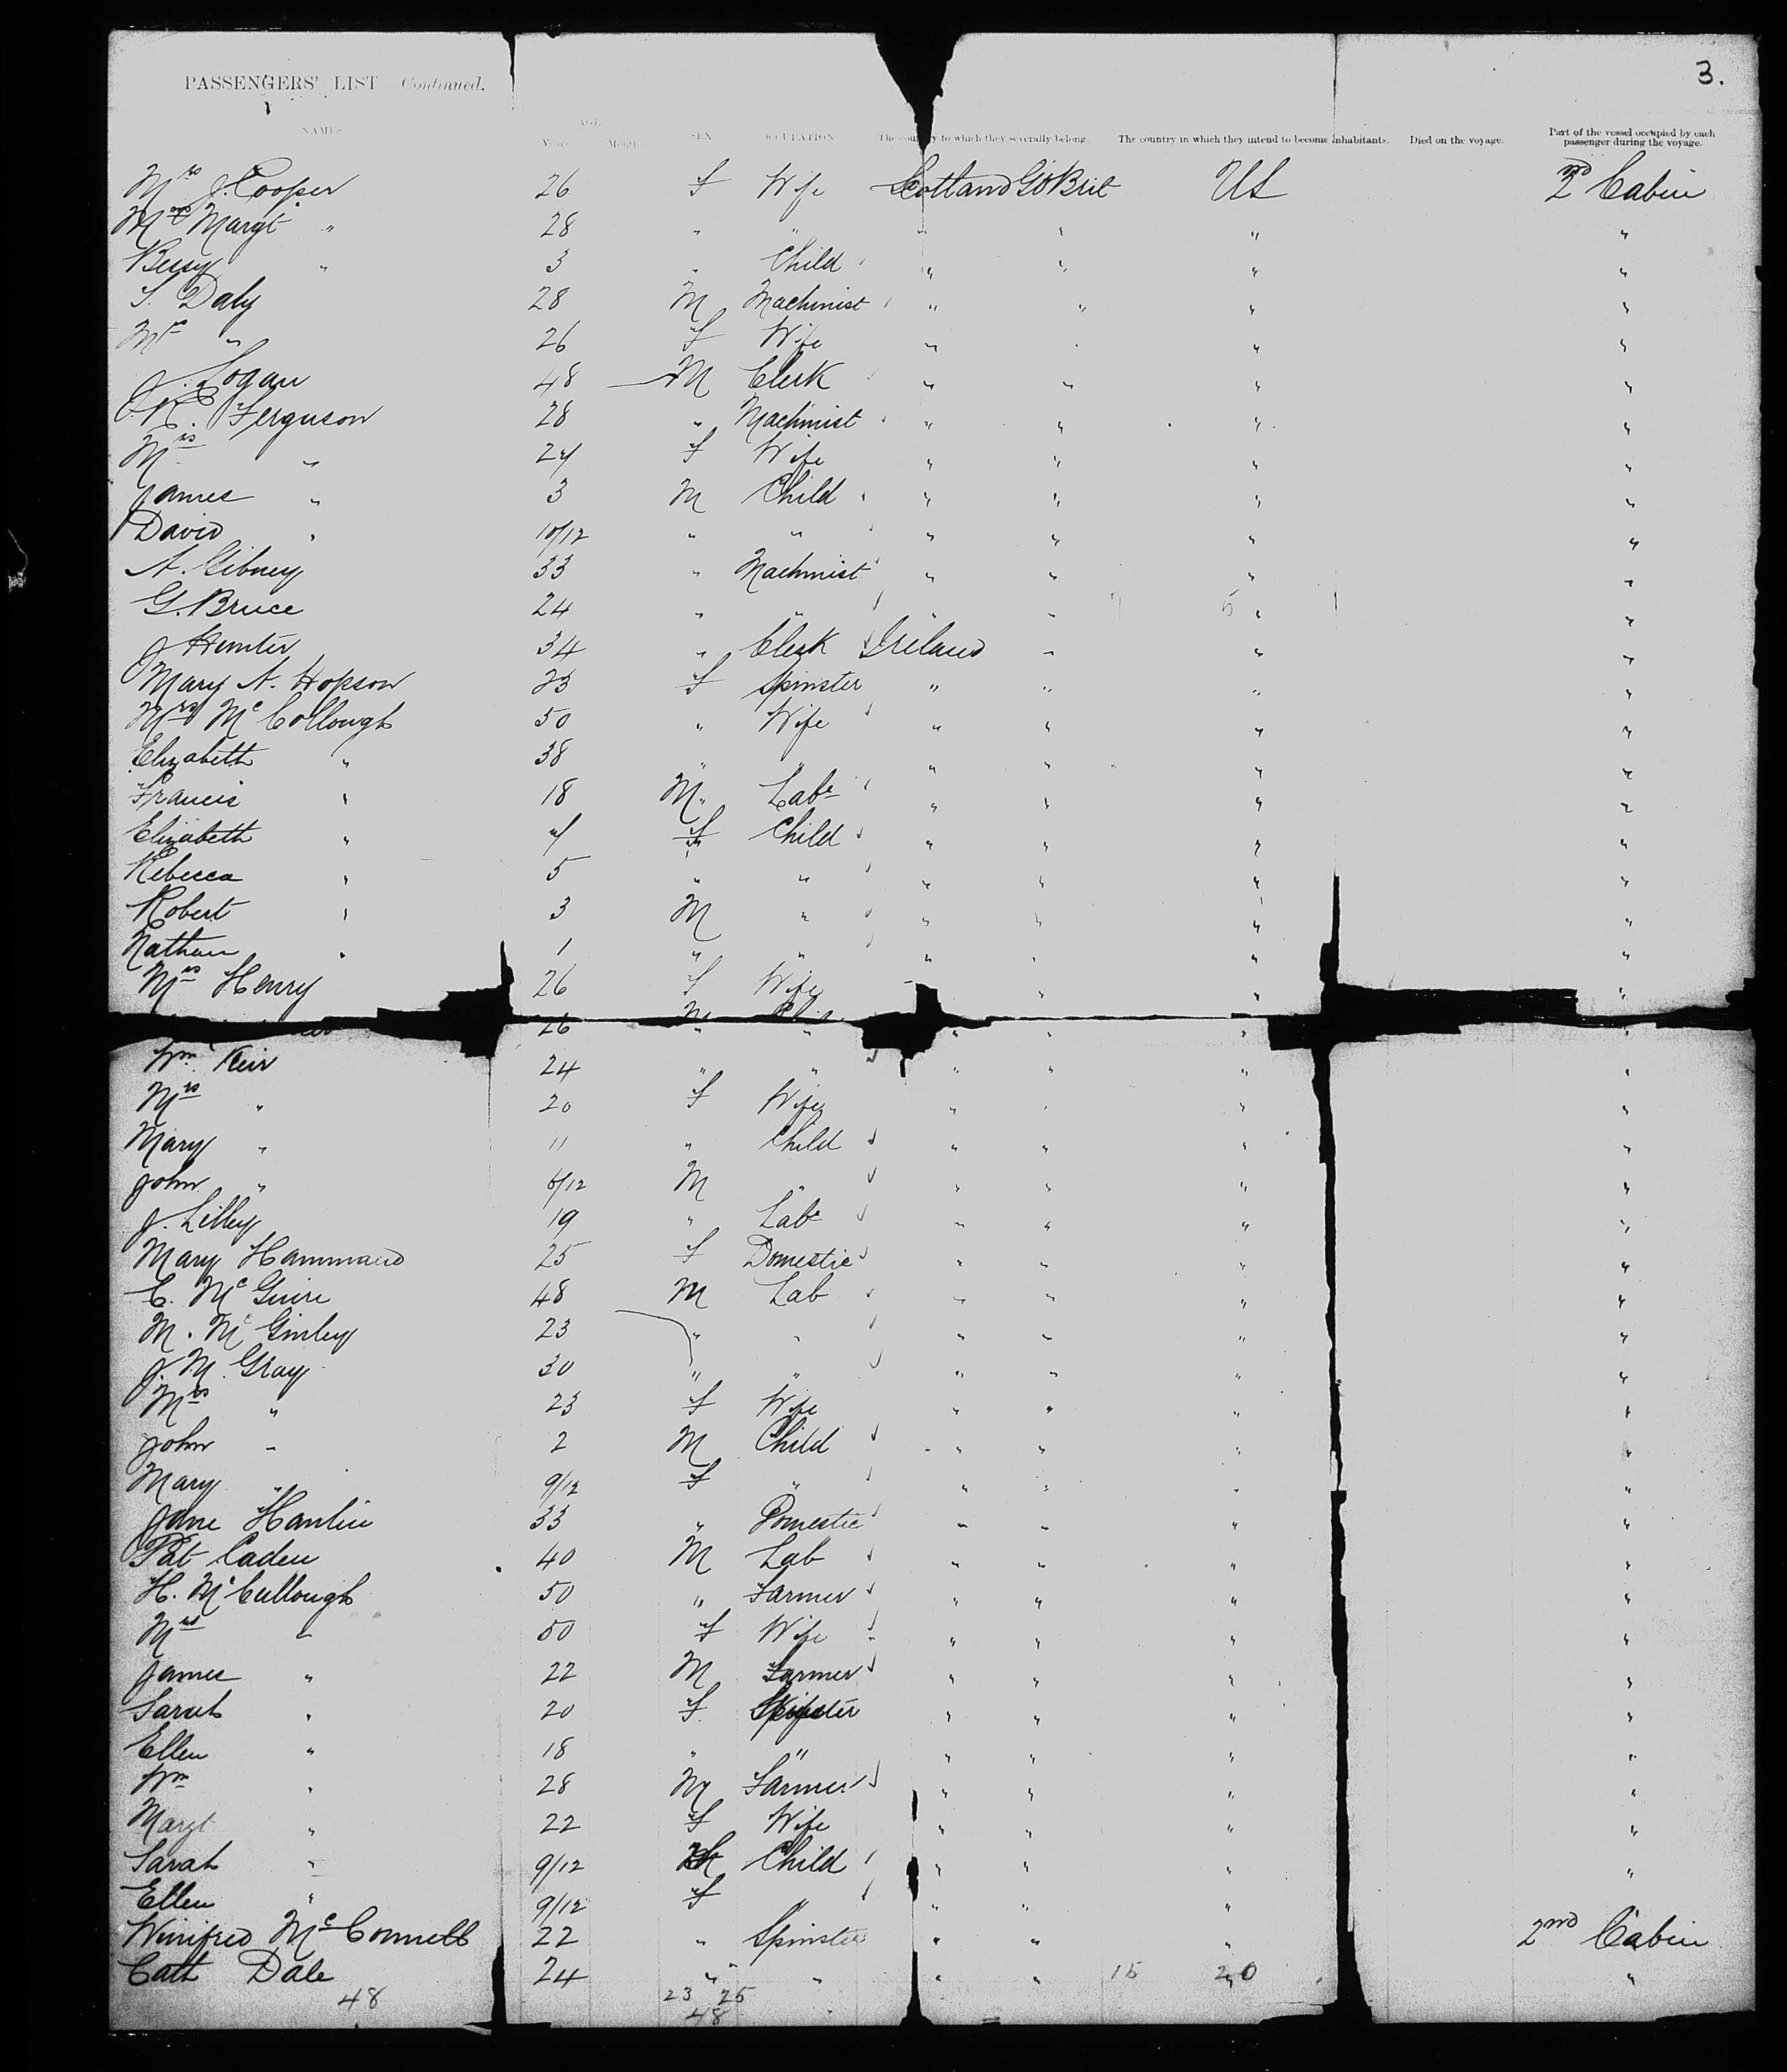 3.
PASSENGERS' LIST Continued.
NAMES AGE Years Months SEX OCCUPATION The country to which they severally belong. The country in which they intend to become inhabitants. Died on the voyage. Part of the vessel occupied by each passenger during the voyage.
Mrs J. Cooper 26 F Wife Scotland Gt Brit US 2nd Cabin
Mrs Margt " 28 " " " " " "
Bessy " 3 " Child " " " "
S. Daly 28 M Machinist " " " "
Mrs " 26 F Wife " " " "
J. Logan 48 M Clerk " " " "
R. Ferguson 28 " Machinist " " " "
Mrs " 24 F Wife " " " "
James " 3 M Child " " " "
David " 10/12 " " " " " "
A. Gibney 33 " Machinist " " " "
G. Bruce 24 " " " " 5 " "
J Hunter 34 " Clerk Ireland " " "
Mary A. Hopson 23 F Spinster " " " "
Mrs McCollough 50 " Wife " " " "
Elizabeth " 38 " " " " " "
Francis " 18 M Labr " " " "
Elizabeth " 7 F Child " " " "
Rebecca " 5 " " " " " "
Robert " 3 M " " " " "
Nathan " 1 " " " " " "
Mrs Henry 26 F Wife " " "
26 " " " " " "
Wm Keir 24 " " " " " "
Mrs " 20 F Wife " " " "
Mary " 11 " Child " " " "
John " 6/12 M " " " " "
J. Lilley 19 " Labr " " " "
Mary Hammand 25 F Domestic " " " "
C. McGuire 48 M Lab " " " "
M. McGinley 23 " " " " " "
J. M. Gray 30 " " " " " "
Mrs " 23 F Wife " " " "
John " 2 M Child " " " "
Mary " 9/12 F " " " " "
Jane Hanlin 33 " Domestic " " " "
Pat Caden 40 M Lab " " " "
H. McCullough 50 " Farmer " " " "
Mrs " 50 F Wife " " " "
James " 22 M Farmer " " " "
Sarah " 20 F Spinster " " " "
Ellen " 18 " " " " " "
Wm " 28 M Farmer " " " "
Margt " 22 F Wife " " " "
Sarah " 9/12 Child " " " "
Ellen " 9/12 F " " " " "
Winifred McConnell 22 " Spinster " " " 2nd Cabin
Cath Dale 24 " " " " 15 20 "
48 23 25
48